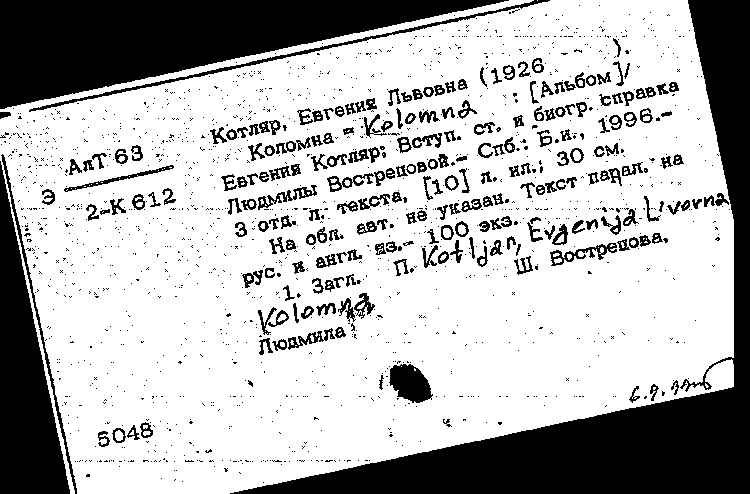 Котляр, Евгения Львовна (1926      ).
АлТ 63
Э
2-К 612
Коломна = Kolomna : [Альбом]/
Евгения Котляр; Вступ. ст. и биогр. справка
Людмилы Востреповой.- Спб.: Б.и., 1996.-
3 отд. л. текста, [10] л. ил.; 30 см.
На обл. авт. не указан. Текст парал. на
рус. и англ. яз.- 100 экз.
1. Загл. П. Kotljar, Evgenija L'vovna
Kolomna Ш. Вострецова,
Людмила
5048